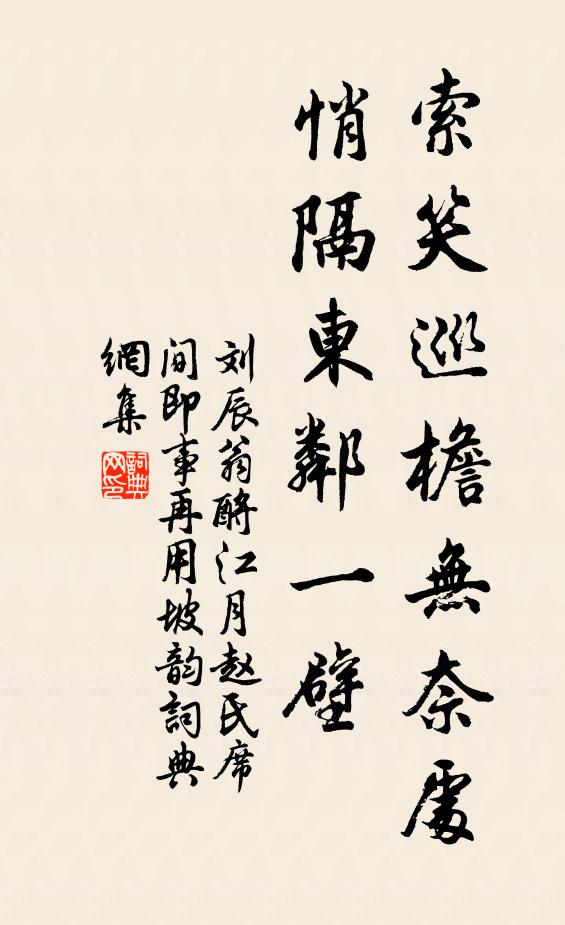 索笑巡檐無奈處
悄隔東鄰一壁
刘辰翁酹江月赵氏席
间即事再用坡韵詞典
網集
詞典
网印